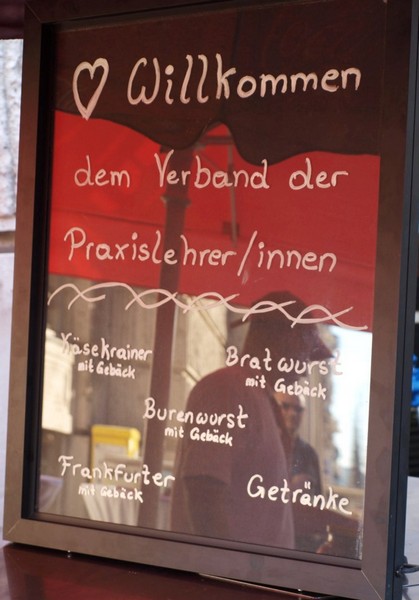 ♡ Willkommen
dem Verband der
Praxislehrer/innen
Käsekrainer
mit Gebäck
Bratwurst
mit Gebäck
Burenwurst
mit Gebäck
Frankfurter
mit Gebäck
Getränke